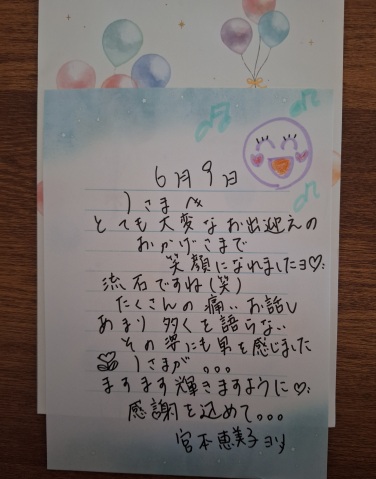 6月9日
Jさまへ
とても大変なお出迎えの
おかげさまで
笑顔になれましたヨ♡
流石ですね(笑)
たくさんの痛いお話し
あまり多くを語らない
その姿にも男を感じました
Jさまが。。。
ますます輝きますように♡
感謝を込めて。。。
宮本恵美子ヨリ